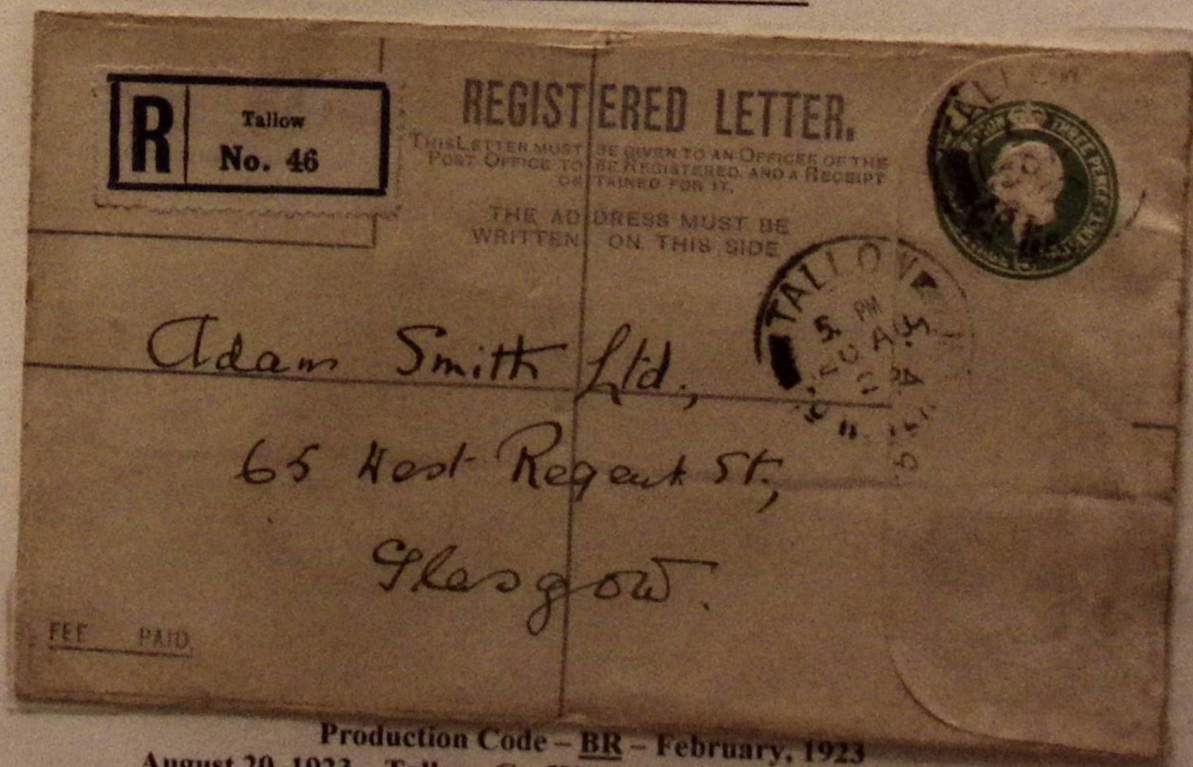 R
Tallow
No. 46
REGISTERED LETTER.
THIS LETTER MUST BE GIVEN TO AN OFFICER OF THE
POST OFFICE TO BE REGISTERED, AND A RECEIPT
OBTAINED FOR IT.
THE ADDRESS MUST BE
WRITTEN ON THIS SIDE
TALLOW
THREE PENCE
TALLOW
5 PM
20 AU
Adam Smith Ltd.,
65 West Regent St.,
Glasgow.
FEE PAID
Production Code – BR – February, 1923
August 20, 1923